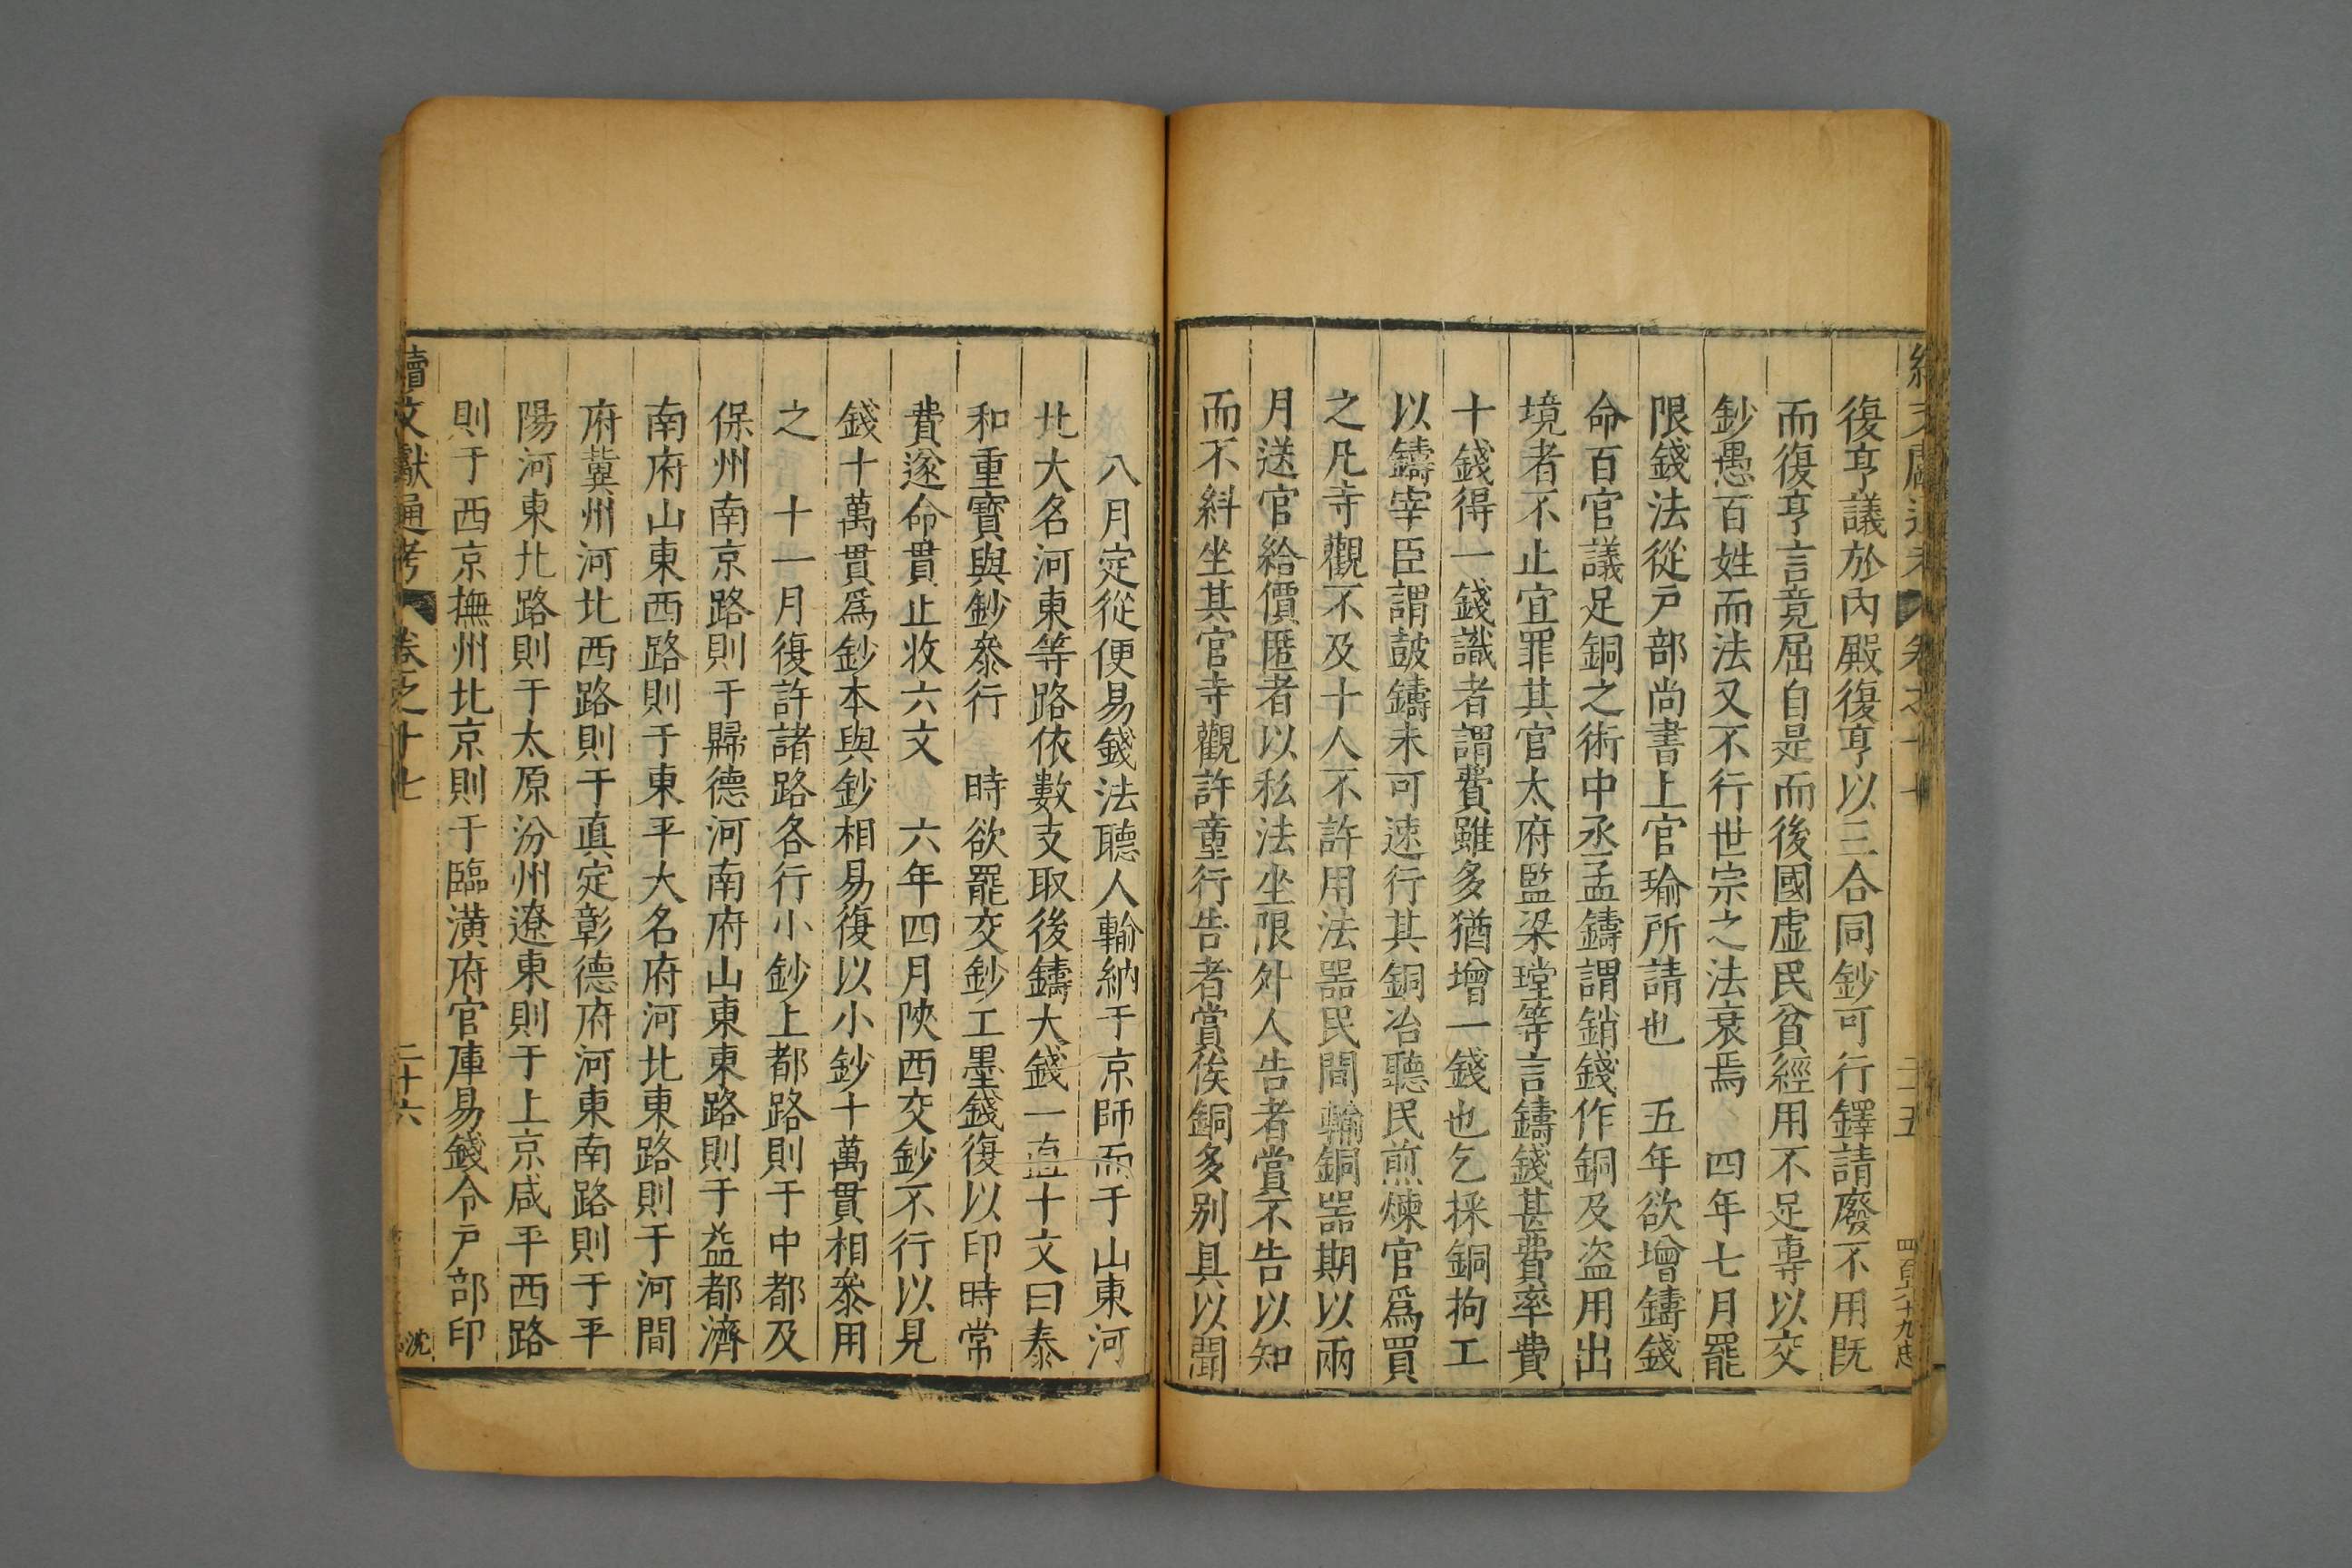 復亨議於內殿復亨以三合同鈔可行鐸請廢不用既
而復亨言竟屈自是而後國虛民貧經用不足專以交
鈔愚百姓而法又不行世宗之法衰焉 四年七月罷
限錢法從戸部尚書上官瑜所請也 五年欲增鑄錢
命百官議足銅之術中丞孟鑄謂銷錢作銅及盜用出
境者不止宜罪其官太府監梁瑝等言鑄錢甚費率費
十錢得一錢識者謂費雖多猶增一錢也乞採銅拘工
以鑄宰臣謂鼓鑄未可速行其銅冶聽民煎煉官爲買
之凡寺觀不及十人不許用法器民間輸銅器期以兩
月送官給價匿者以私法坐限外人告者賞不告以知
而不糾坐其官寺觀許童行告者賞俟銅多別具以聞
八月定從便易錢法聽人輸納于京師而于山東河
北大名河東等路依數支取後鑄大錢一直十文曰泰
和重寶與鈔叅行 時欲罷交鈔工墨錢復以印時常
費遂命貫止收六文 六年四月陝西交鈔不行以見
錢十萬貫爲鈔本與鈔相易復以小鈔十萬貫相叅用
之 十一月復許諸路各行小鈔上都路則于中都及
保州南京路則于歸德河南府山東東路則于益都濟
南府山東西路則于東平大名府河北東路則于河間
府冀州河北西路則于眞定彰德府河東南路則于平
陽河東北路則于太原汾州遼東則于上京咸平西路
則于西京撫州北京則于臨潢府官庫易錢令戸部印
續文獻通考 卷之十七 二十六 沈